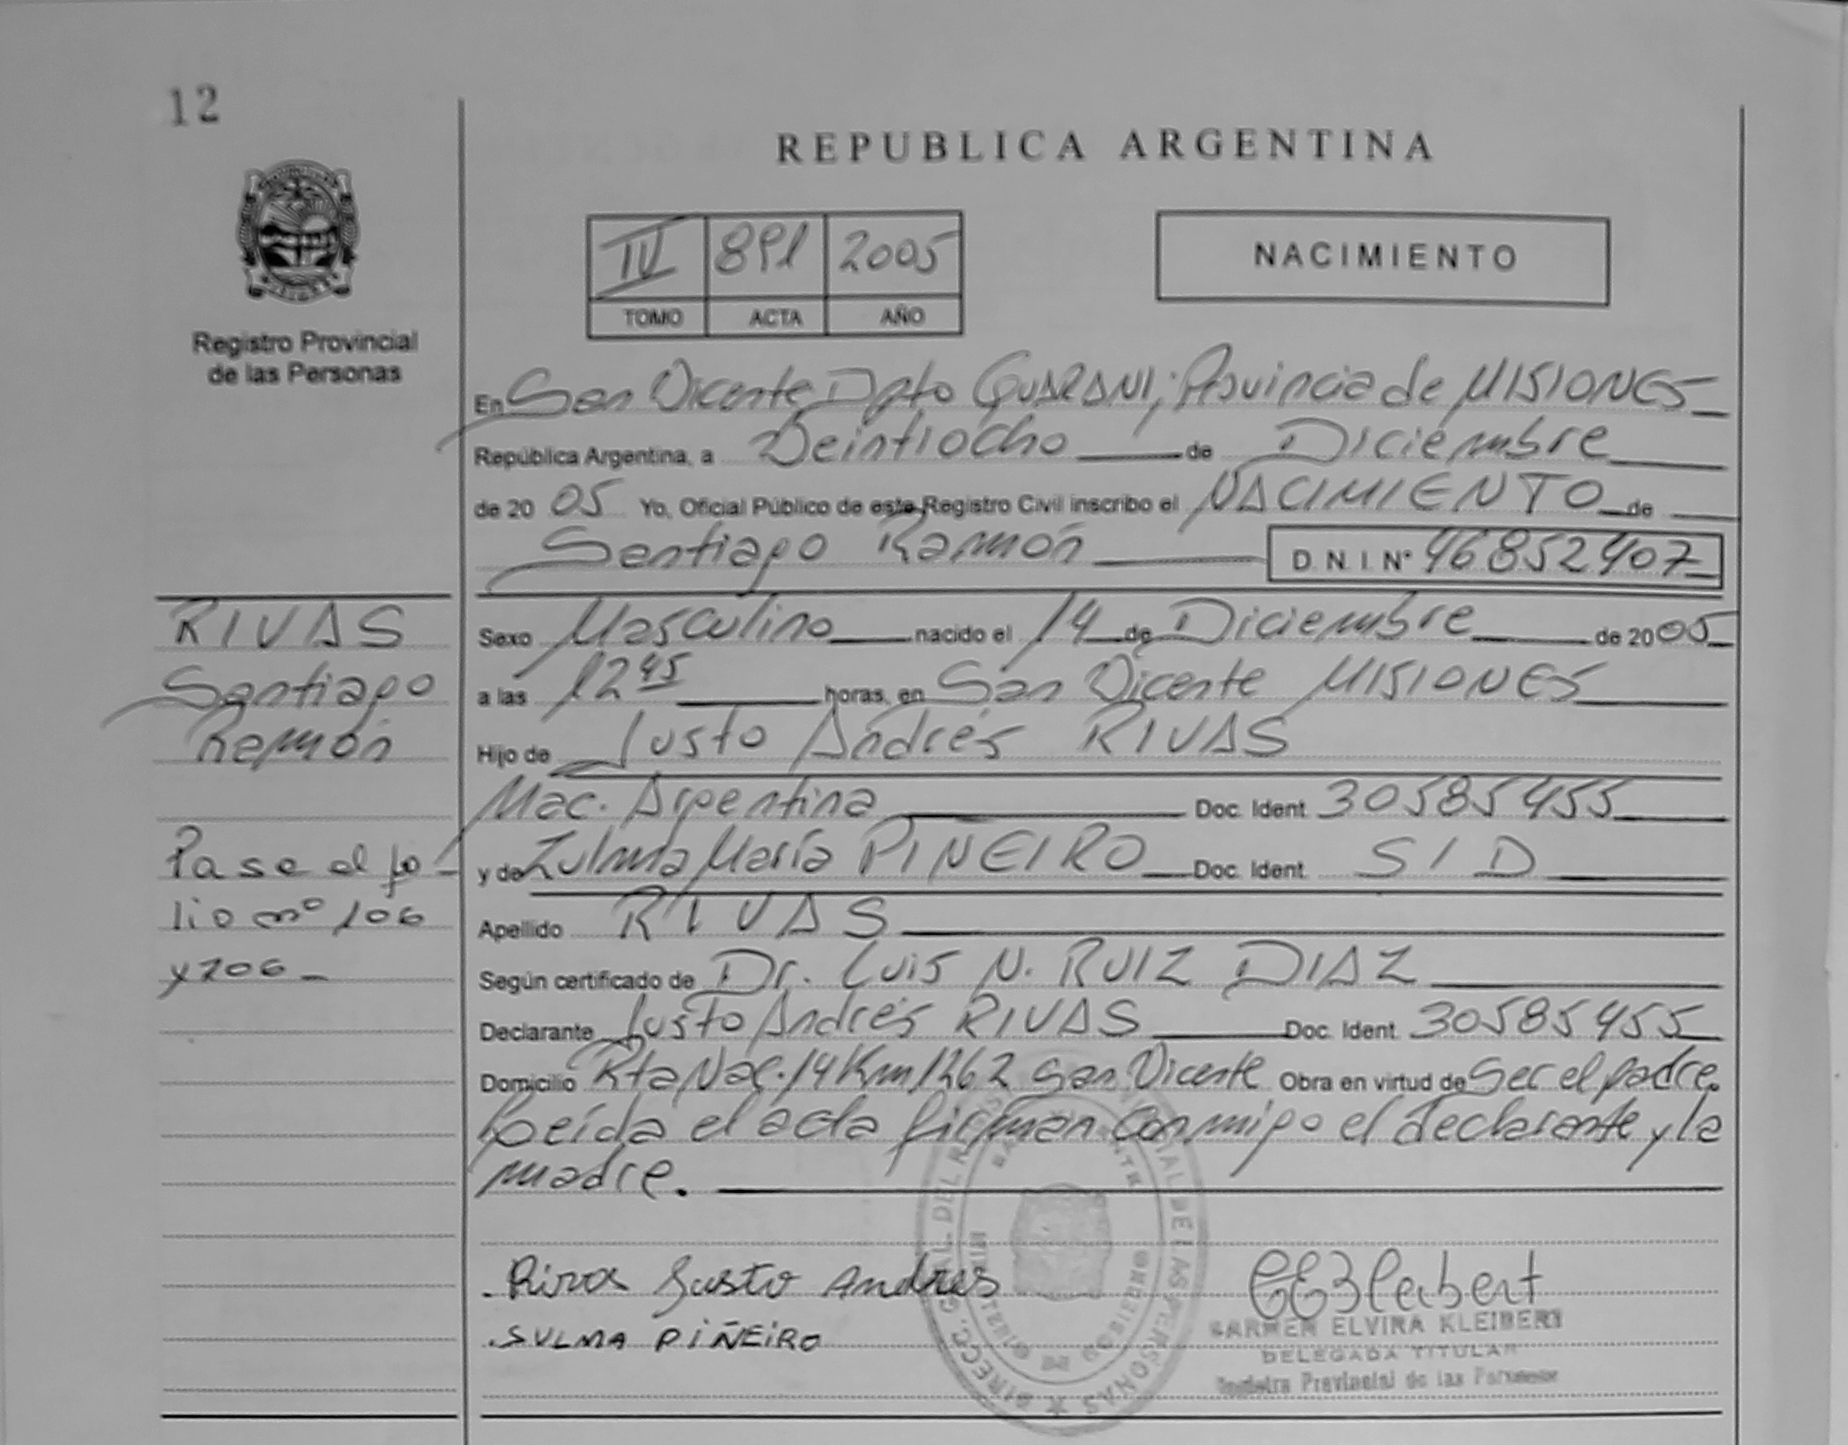 12
REPUBLICA ARGENTINA
IV 891 2005
TOMO ACTA AÑO
NACIMIENTO
Registro Provincial
de las Personas
En San Vicente Dpto GUARANI; Provincia de MISIONES
República Argentina, a Veintiocho de Diciembre
de 20 05 Yo, Oficial Público de este Registro Civil inscribo el NACIMIENTO de
Santiago Ramón D.N.I. Nº 46852407
RIVAS
Santiago
Ramón
Sexo Masculino nacido el 14 de Diciembre de 20 05
a las 12 45 horas, en San Vicente MISIONES
Hijo de Justo Andrés RIVAS
Nac. Argentina Doc. Ident. 30585455
y de Zulma María PIÑEIRO Doc. Ident. S/D
Pase al fo-
lio nº 106
y 206
Apellido RIVAS
Según certificado de Dr. Luis N. RUIZ DIAZ
Declarante Justo Andrés RIVAS Doc. Ident. 30585455
Domicilio Rta Nac. 14 Km 1262 San Vicente Obra en virtud de Ser el padre.
Leída el acta firman conmigo el declarante y la
madre.
Rivas Justo Andres
SULMA PIÑEIRO
CARMEN ELVIRA KLEIBERT
DELEGADA TITULAR
Registro Provincial de las Personas